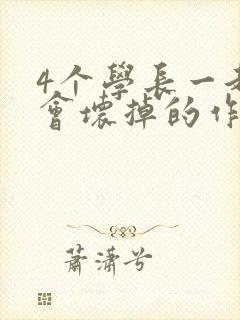 4个學長一起
會壞掉的作
蕭瀟兮